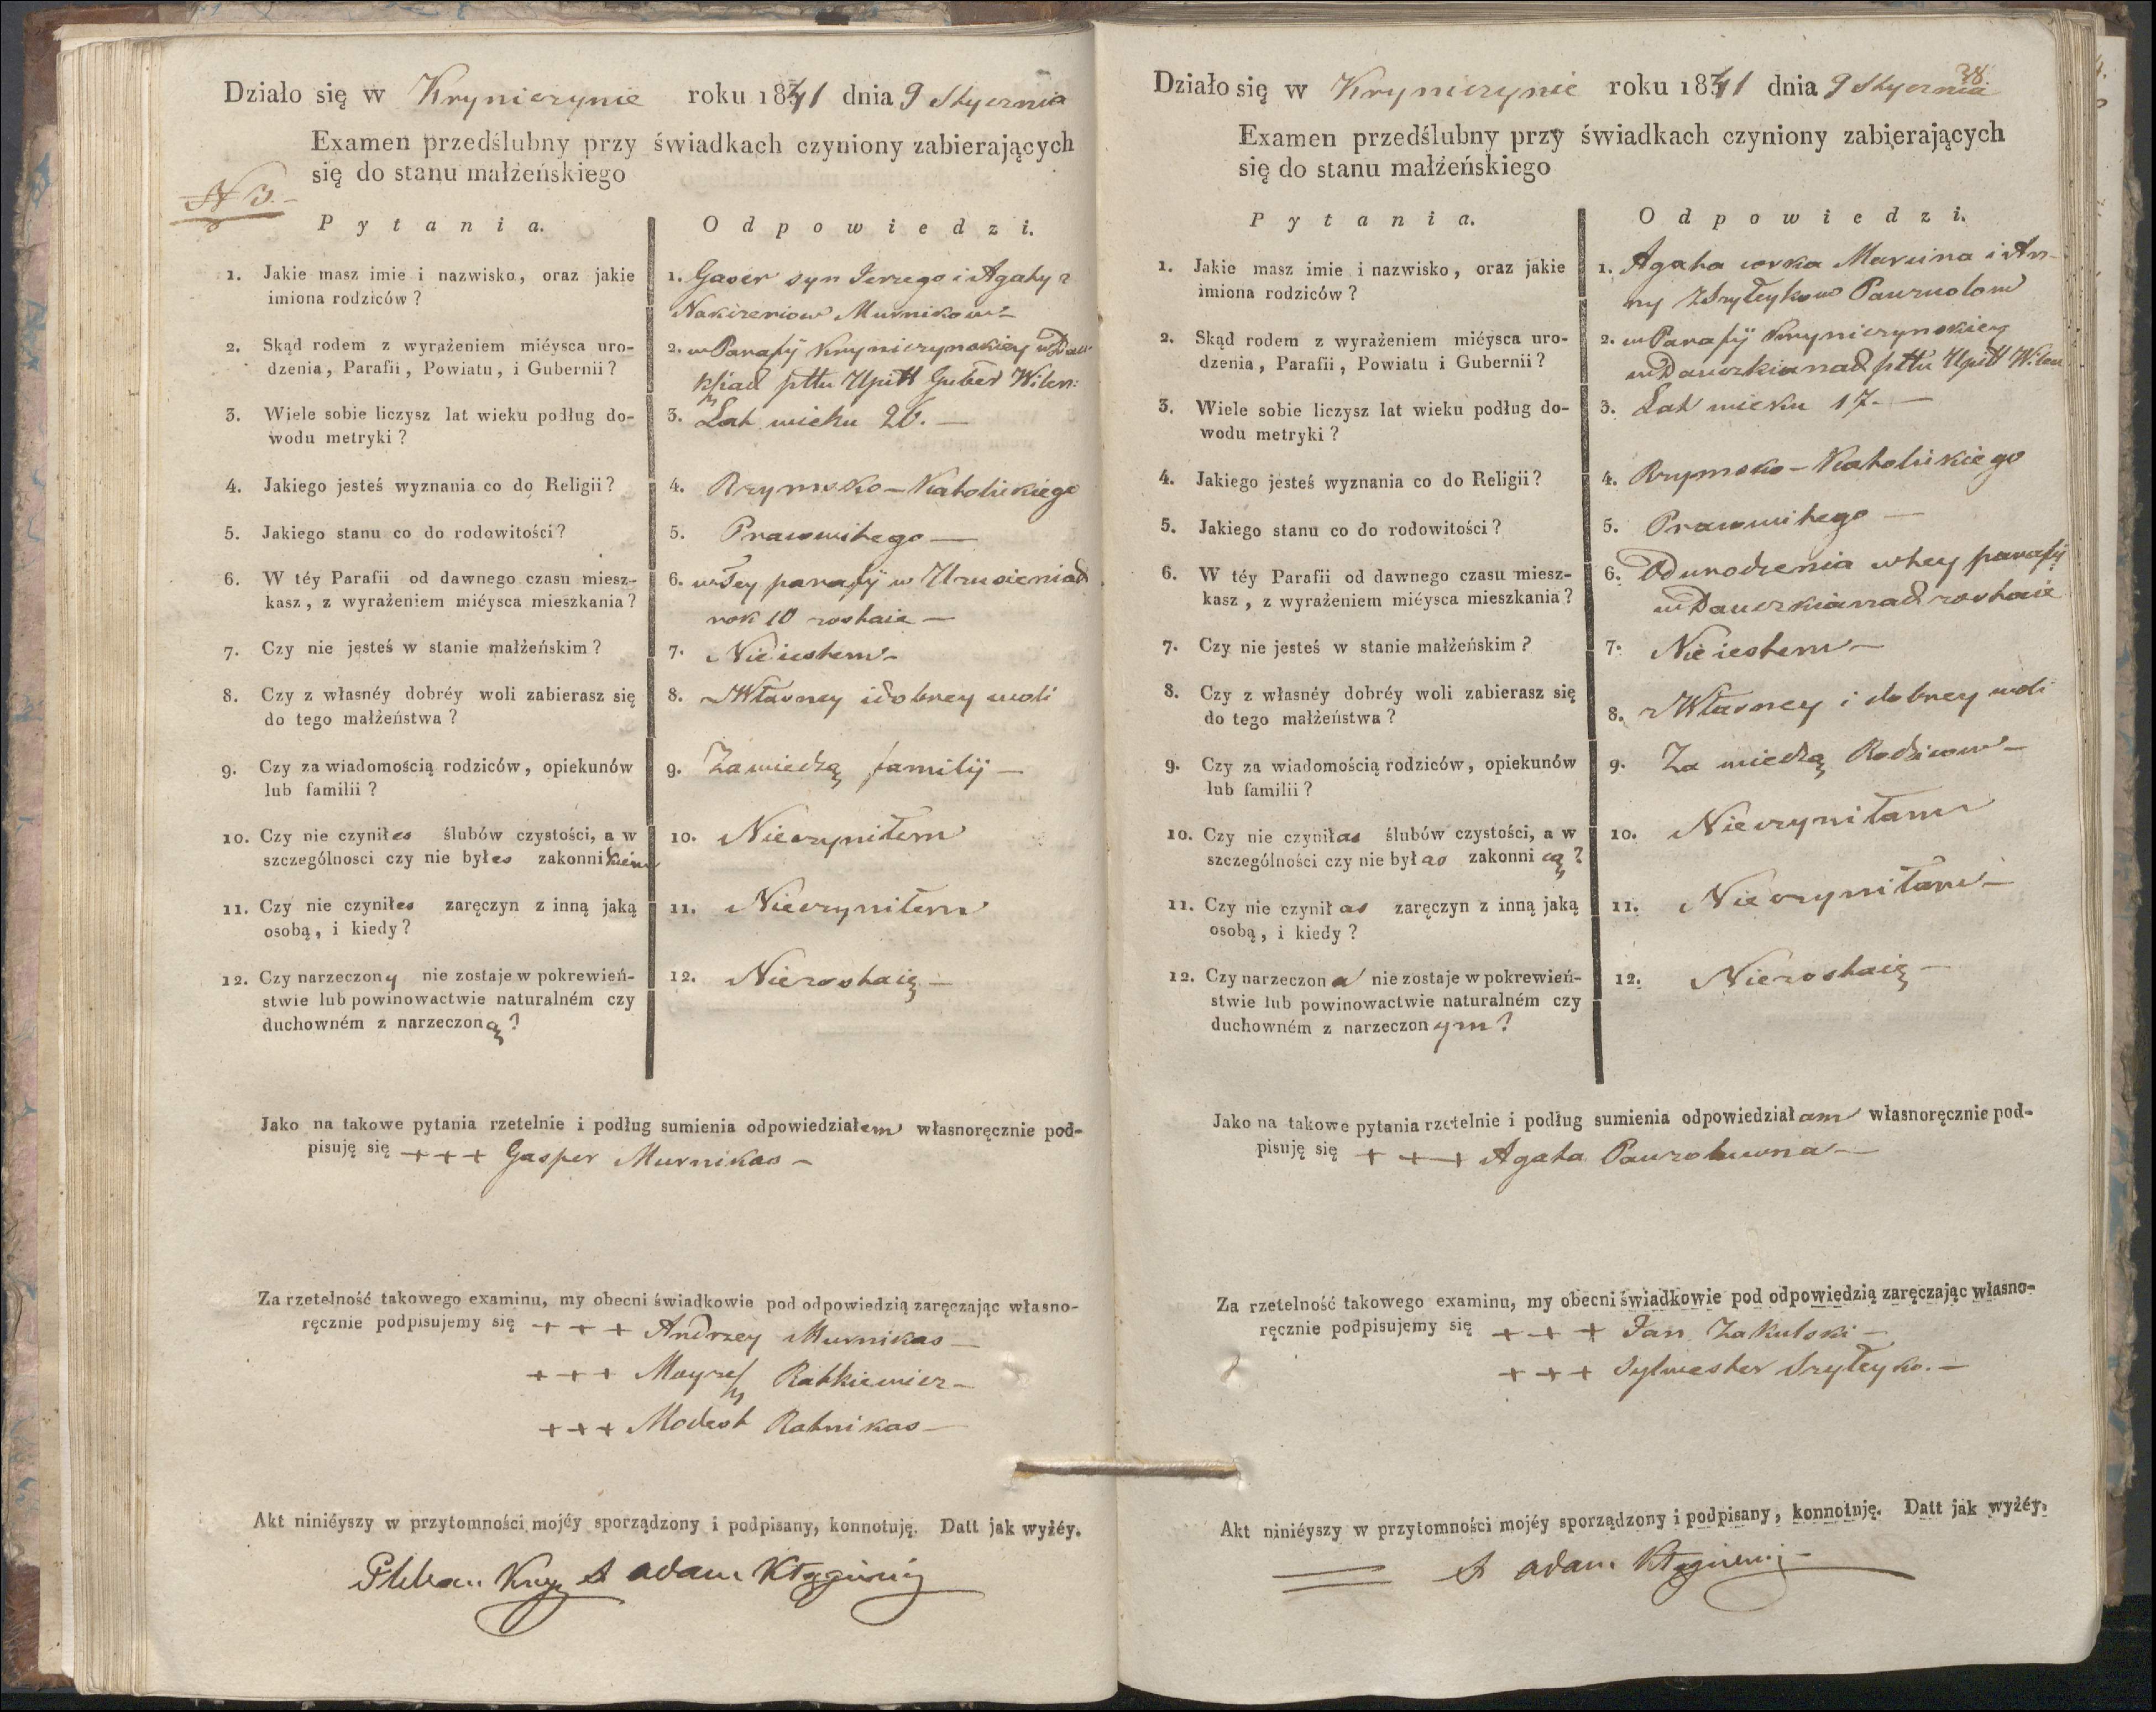 Działo się w Kryniczynie roku 1841 dnia 9 Stycznia
Examen przedślubny przy świadkach czyniony zabierających
się do stanu małżeńskiego
N 3.
Pytania.
Odpowiedzi.
1. Jakie masz imie i nazwisko, oraz jakie
imiona rodziców?
1. Gasper syn Jerzego i Agaty z
Murnikow
2. Skąd rodem z wyrażeniem miéysca uro-
dzenia, Parafii, Powiatu, i Gubernii?
2. w Parafij Kryniczynskiey w
pttu Upitt Guber Wilen:
3. Wiele sobie liczysz lat wieku podług do-
wodu metryki?
3. Lat wieku 26.—
4. Jakiego jesteś wyznania co do Religii?
4. Rzymsko-Katolickiego
5. Jakiego stanu co do rodowitości?
5. Prawowitego—
6. W téy Parafii od dawnego czasu miesz-
kasz, z wyrażeniem miéysca mieszkania?
6. w Tey parafij w
rok 10 zostaie—
7. Czy nie jesteś w stanie małżeńskim?
7. Nieiestem—
8. Czy z własnéy dobréy woli zabierasz się
do tego małżeństwa?
8. zWłasney i dobrey woli
9. Czy za wiadomością rodziców, opiekunów
lub familii?
9. Za wiedzą familij—
10. Czy nie czyniłes ślubów czystości, a w
szczególnosci czy nie byłes zakonnikiem
10. Nieczyniłem
11. Czy nie czyniłes zaręczyn z inną jaką
osobą, i kiedy?
11. Nieczyniłem
12. Czy narzeczony nie zostaje w pokrewień-
stwie lub powinowactwie naturalném czy
duchowném z narzeczoną?
12. Niezostaię—
Jako na takowe pytania rzetelnie i podług sumienia odpowiedziałem własnoręcznie pod-
pisuję się +++ Gasper Murnikas—
Za rzetelność takowego examinu, my obecni świadkowie pod odpowiedzią zaręczając własno-
ręcznie podpisujemy się +++ Andrzey Murnikas—
+++ Ratkiewicz—
+++ Modest Ratnikas—
Akt niniéyszy w przytomności mojéy sporządzony i podpisany, konnotuję. Datt jak wyżéy.
Pleban Kryn X Adam
38.
Działo się w Kryniczynie roku 1841 dnia 9 Stycznia
Examen przedślubny przy świadkach czyniony zabierających
się do stanu małżeńskiego
Pytania.
Odpowiedzi.
1. Jakie masz imie i nazwisko, oraz jakie
imiona rodziców?
1. Agata corka Marcina i An-
ny z Szyłeykow
2. Skąd rodem z wyrażeniem miéysca uro-
dzenia, Parafii, Powiatu i Gubernii?
2. w Parafij Kryniczynskiey
pttu Upitt Wilen
3. Wiele sobie liczysz lat wieku podług do-
wodu metryki?
3. Lat wieku 17.—
4. Jakiego jesteś wyznania co do Religii?
4. Rzymsko-Katolickiego
5. Jakiego stanu co do rodowitości?
5. Prawowitego—
6. W téy Parafii od dawnego czasu miesz-
kasz, z wyrażeniem miéysca mieszkania?
6. Od urodzenia w tey parafij
zostaie
7. Czy nie jesteś w stanie małżeńskim?
7. Nieiestem—
8. Czy z własnéy dobréy woli zabierasz się
do tego małżeństwa?
8. zWłasney i dobrey woli
9. Czy za wiadomością rodziców, opiekunów
lub familii?
9. Za wiedzą Rodzicow—
10. Czy nie czyniłas ślubów czystości, a w
szczególności czy nie byłas zakonnicą?
10. Nieczyniłam
11. Czy nie czyniłas zaręczyn z inną jaką
osobą, i kiedy?
11. Nieczyniłam—
12. Czy narzeczona nie zostaje w pokrewień-
stwie lub powinowactwie naturalném czy
duchowném z narzeczonym?
12. Niezostaię—
Jako na takowe pytania rzetelnie i podług sumienia odpowiedziałam własnoręcznie pod-
pisuję się +++ Agata
Za rzetelność takowego examinu, my obecni świadkowie pod odpowiedzią zaręczając własno-
ręcznie podpisujemy się +++ Jan Zakulski—
+++ Sylwester Szyłeyko.—
Akt niniéyszy w przytomności mojéy sporządzony i podpisany, konnotuję. Datt jak wyżéy.
X Adam